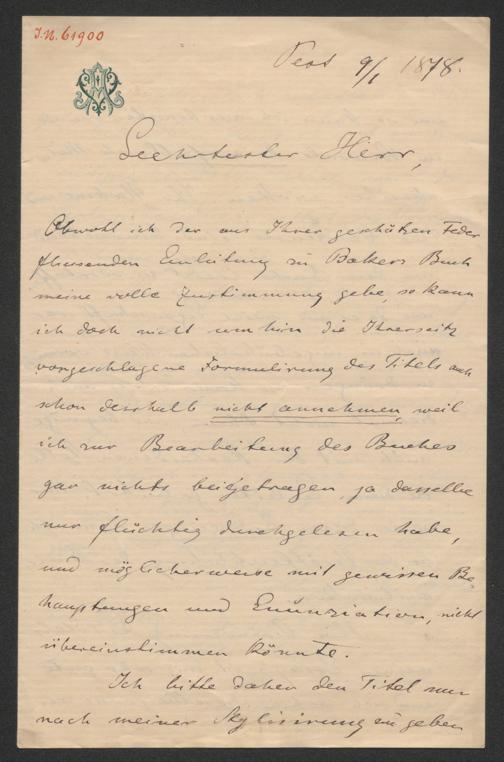 I.N. 61900
Pest 9/1 1878.
Geehrtester Herr,
Obwohl ich der aus Ihrer geschätzen Feder
fliessenden Einleitung zu Bakers Buch
meine volle Zustimmung gebe, so kann
ich doch nicht umhin die Ihrerseits
vorgeschlagene Formulirung des Titels auch
schon desshalb nicht annehmen, weil
ich zur Bearbeitung des Buches
gar nichts beigetragen, ja dasselbe
nur flüchtig durchgelesen habe,
und möglicherweise mit gewissen Be
hauptungen und Enunziation, nicht
übereinstimmen könnte.
Ich bitte daher den Titel nur
nach meiner Stylisirung zu geben